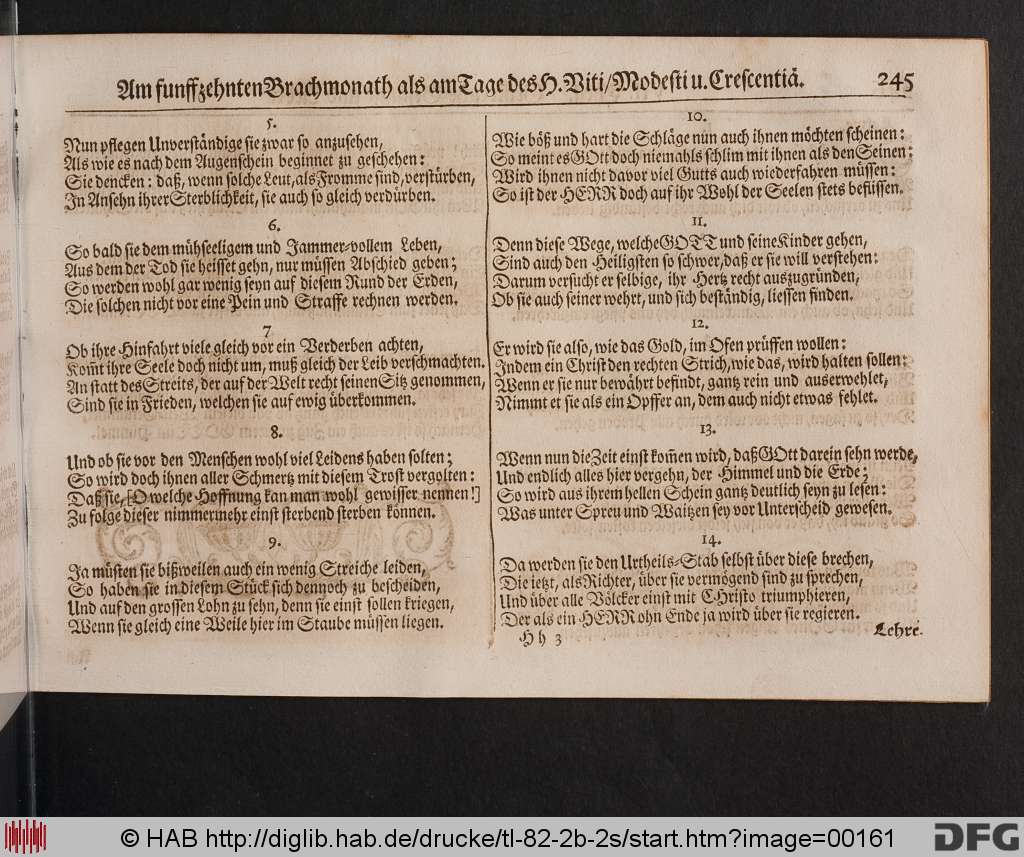 Am funffzehnten Brachmonath als am Tage des H. Viti/Modesti u. Crescentiä. 245
5.
Nun pflegen Unverständige sie zwar so anzusehen,
Als wie es nach dem Augenschein beginnet zu geschehen:
Sie dencken: daß, wenn solche Leut, als Fromme sind, verstürben,
In Ansehn ihrer Sterblichkeit, sie auch so gleich verdürben.
6.
So bald sie dem mühseeligem und Jammer-vollem Leben,
Aus dem der Tod sie heisset gehn, nur müssen Abschied geben;
So werden wohl gar wenig seyn auf diesem Rund der Erden,
Die solchen nicht vor eine Pein und Straffe rechnen werden.
7
Ob ihre Hinfahrt viele gleich vor ein Verderben achten,
Kom̃t ihre Seele doch nicht um, muß gleich der Leib verschmachten.
An statt des Streits, der auf der Welt recht seinen Sitz genommen,
Sind sie in Frieden, welchen sie auf ewig überkommen.
8.
Und ob sie vor den Menschen wohl viel Leidens haben solten;
So wird doch ihnen aller Schmertz mit diesem Trost vergolten:
Daß sie, [O welche Hoffnung kan man wohl gewisser nennen!]
Zu folge dieser nimmermehr einst sterbend sterben können.
9.
Ja müsten sie bißweilen auch ein wenig Streiche leiden,
So haben sie in diesem Stück sich dennoch zu bescheiden,
Und auf den grossen Lohn zu sehn, denn sie einst sollen kriegen,
Wenn sie gleich eine Weile hier im Staube müssen liegen.
10.
Wie böß und hart die Schläge nun auch ihnen möchten scheinen:
So meint es GOtt doch niemahls schlim mit ihnen als den Seinen:
Wird ihnen nicht davor viel Gutts auch wiederfahren müssen:
So ist der HERR doch auf ihr Wohl der Seelen stets beflissen.
11.
Denn diese Wege, welche GOTT und seine Kinder gehen,
Sind auch den Heiligsten so schwer, daß er sie will verstehen:
Darum versucht er selbige, ihr Hertz recht auszugründen,
Ob sie auch seiner wehrt, und sich beständig, liessen finden.
12.
Er wird sie also, wie das Gold, im Ofen prüffen wollen:
Indem ein Christ den rechten Strich, wie das, wird halten sollen:
Wenn er sie nur bewährt befindt, gantz rein und auserwehlet,
Nimmt er sie als ein Opffer an, dem auch nicht etwas fehlet.
13.
Wenn nun die Zeit einst kom̃en wird, daß GOtt darein sehn werde,
Und endlich alles hier vergehn, der Himmel und die Erde;
So wird aus ihrem hellen Schein gantz deutlich seyn zu lesen:
Was unter Spreu und Waitzen sey vor Unterscheid gewesen.
14.
Da werden sie den Urtheils-Stab selbst über diese brechen,
Die ietzt, als Richter, über sie vermögend sind zu sprechen,
Und über alle Völcker einst mit CHristo triumphieren,
Der als ein HERR ohn Ende ja wird über sie regieren.
H h 3 Lehre.
© HAB http://diglib.hab.de/drucke/tl-82-2b-2s/start.htm?image=00161
DFG